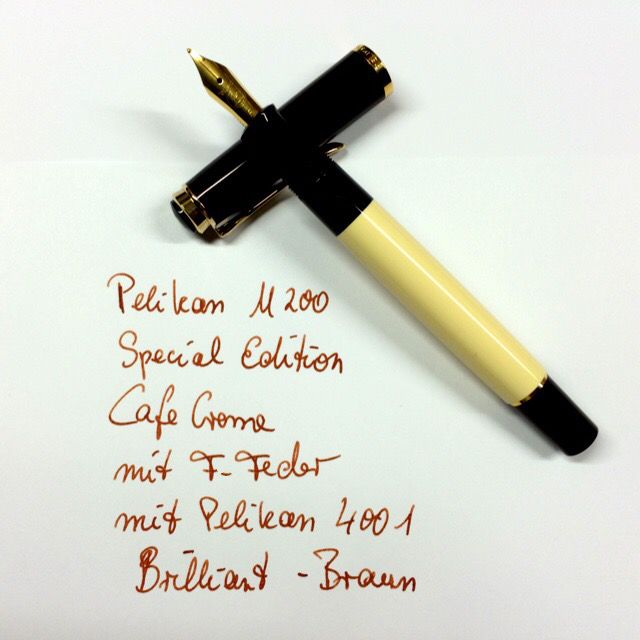 Pelikan M200
Special Edition
Cafe Creme
mit F-Feder
mit Pelikan 4001
Brilliant-Braun